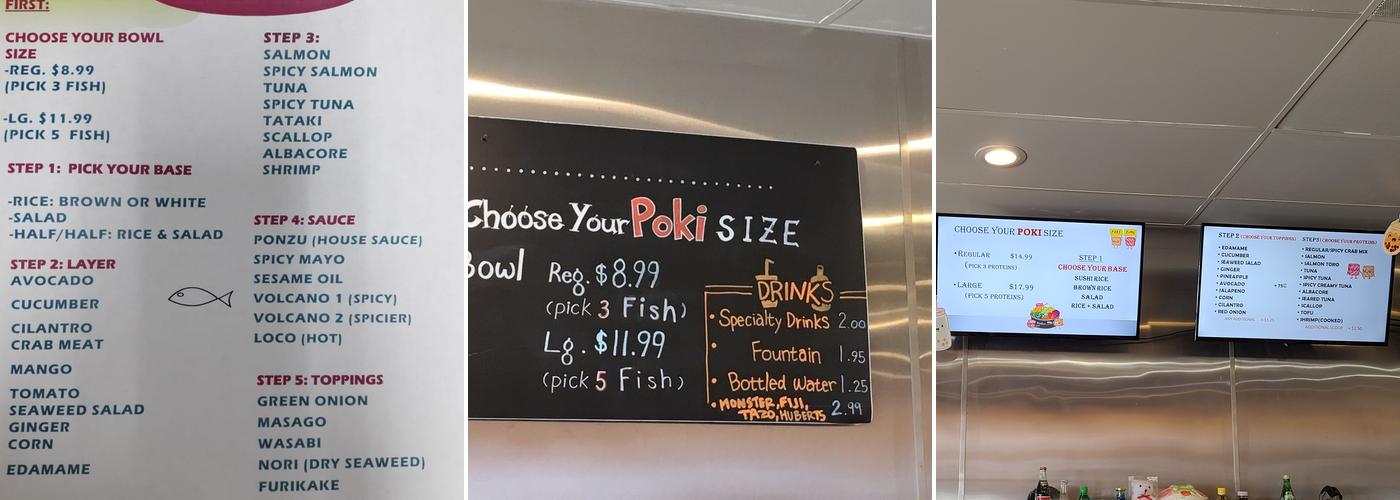 FIRST:
CHOOSE YOUR BOWL
SIZE
-REG. $8.99
(PICK 3 FISH)
-LG. $11.99
(PICK 5 FISH)
STEP 1: PICK YOUR BASE
-RICE: BROWN OR WHITE
-SALAD
-HALF/HALF: RICE & SALAD
STEP 2: LAYER
AVOCADO
CUCUMBER
CILANTRO
CRAB MEAT
MANGO
TOMATO
SEAWEED SALAD
GINGER
CORN
EDAMAME
STEP 3:
SALMON
SPICY SALMON
TUNA
SPICY TUNA
TATAKI
SCALLOP
ALBACORE
SHRIMP
STEP 4: SAUCE
PONZU (HOUSE SAUCE)
SPICY MAYO
SESAME OIL
VOLCANO 1 (SPICY)
VOLCANO 2 (SPICIER)
LOCO (HOT)
STEP 5: TOPPINGS
GREEN ONION
MASAGO
WASABI
NORI (DRY SEAWEED)
FURIKAKE
Choose Your Poki SIZE
Bowl
Reg. $8.99
(pick 3 Fish)
Lg. $11.99
(pick 5 Fish)
DRINKS
• Specialty Drinks 2.00
Fountain 1.95
• Bottled Water 1.25
• MONSTER, FIJI,
TAZO, HUBERTS 2.99
CHOOSE YOUR POKI SIZE
• REGULAR $14.99
(PICK 3 PROTEINS)
• LARGE $17.99
(PICK 5 PROTEINS)
STEP 1
CHOOSE YOUR BASE
SUSHI RICE
BROWN RICE
SALAD
RICE + SALAD
STEP 2 (CHOOSE YOUR TOPPINGS)
• EDAMAME
• CUCUMBER
• SEAWEED SALAD
• GINGER
• PINEAPPLE
• AVOCADO +75¢
• JALAPENO
• CORN
• CILANTRO
• RED ONION
STEP 3 (CHOOSE YOUR PROTEINS)
• REGULAR/SPICY CRAB MIX
• SALMON
• SALMON TORO
• TUNA
• SPICY TUNA
• SPICY CREAMY TUNA
• ALBACORE
• SEARED TUNA
• SCALLOP
• TOFU
• SHRIMP(COOKED)
ADDITIONAL SCOOP